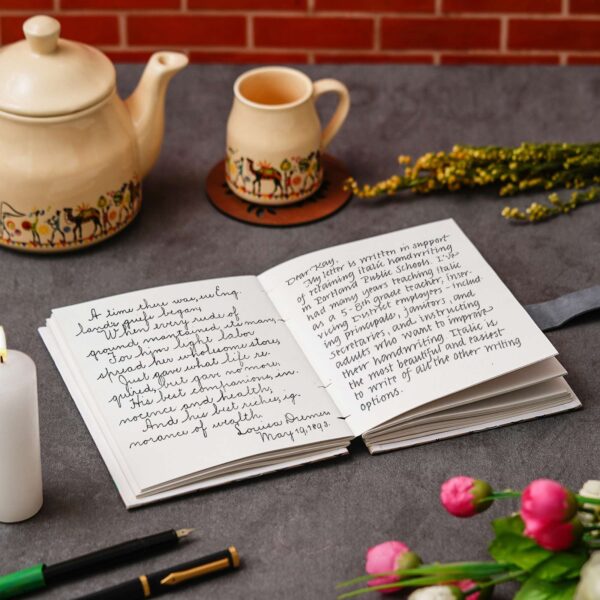 A time there was, ere Eng-
land's griefs began,
When every rood of
ground maintained its man,
For him light labor
spread her wholesome store,
Just gave what life re-
quired, but gave no more.
His best companions, in-
nocence and health,
And his best riches, ig-
norance of wealth.
Louisa
May 19, 1893.
Dear Kay,
My letter is written in support
of retaining italic handwriting
in Portland Public Schools. I've
had many years teaching italic
as a 5-8th grade teacher, inser-
vicing District employees - includ-
ing principals, janitors, and
secretaries, and instructing
adults who want to improve
their handwriting. Italic is
the most beautiful and easiest
to write of all the other writing
options.